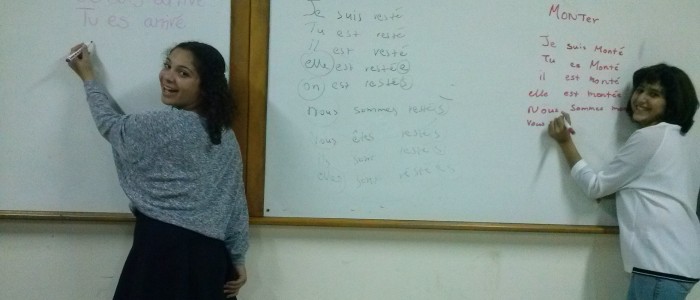 Je suis arrivé
Tu es arrivé
Je suis resté
Tu est resté
il est resté
elle est restée
on est restés
nous sommes restés
vous êtes restés
ils sont restés
elles sont restées
MONTER
Je suis Monté
Tu es Monté
il est monté
elle est montée
Nous sommes
vous